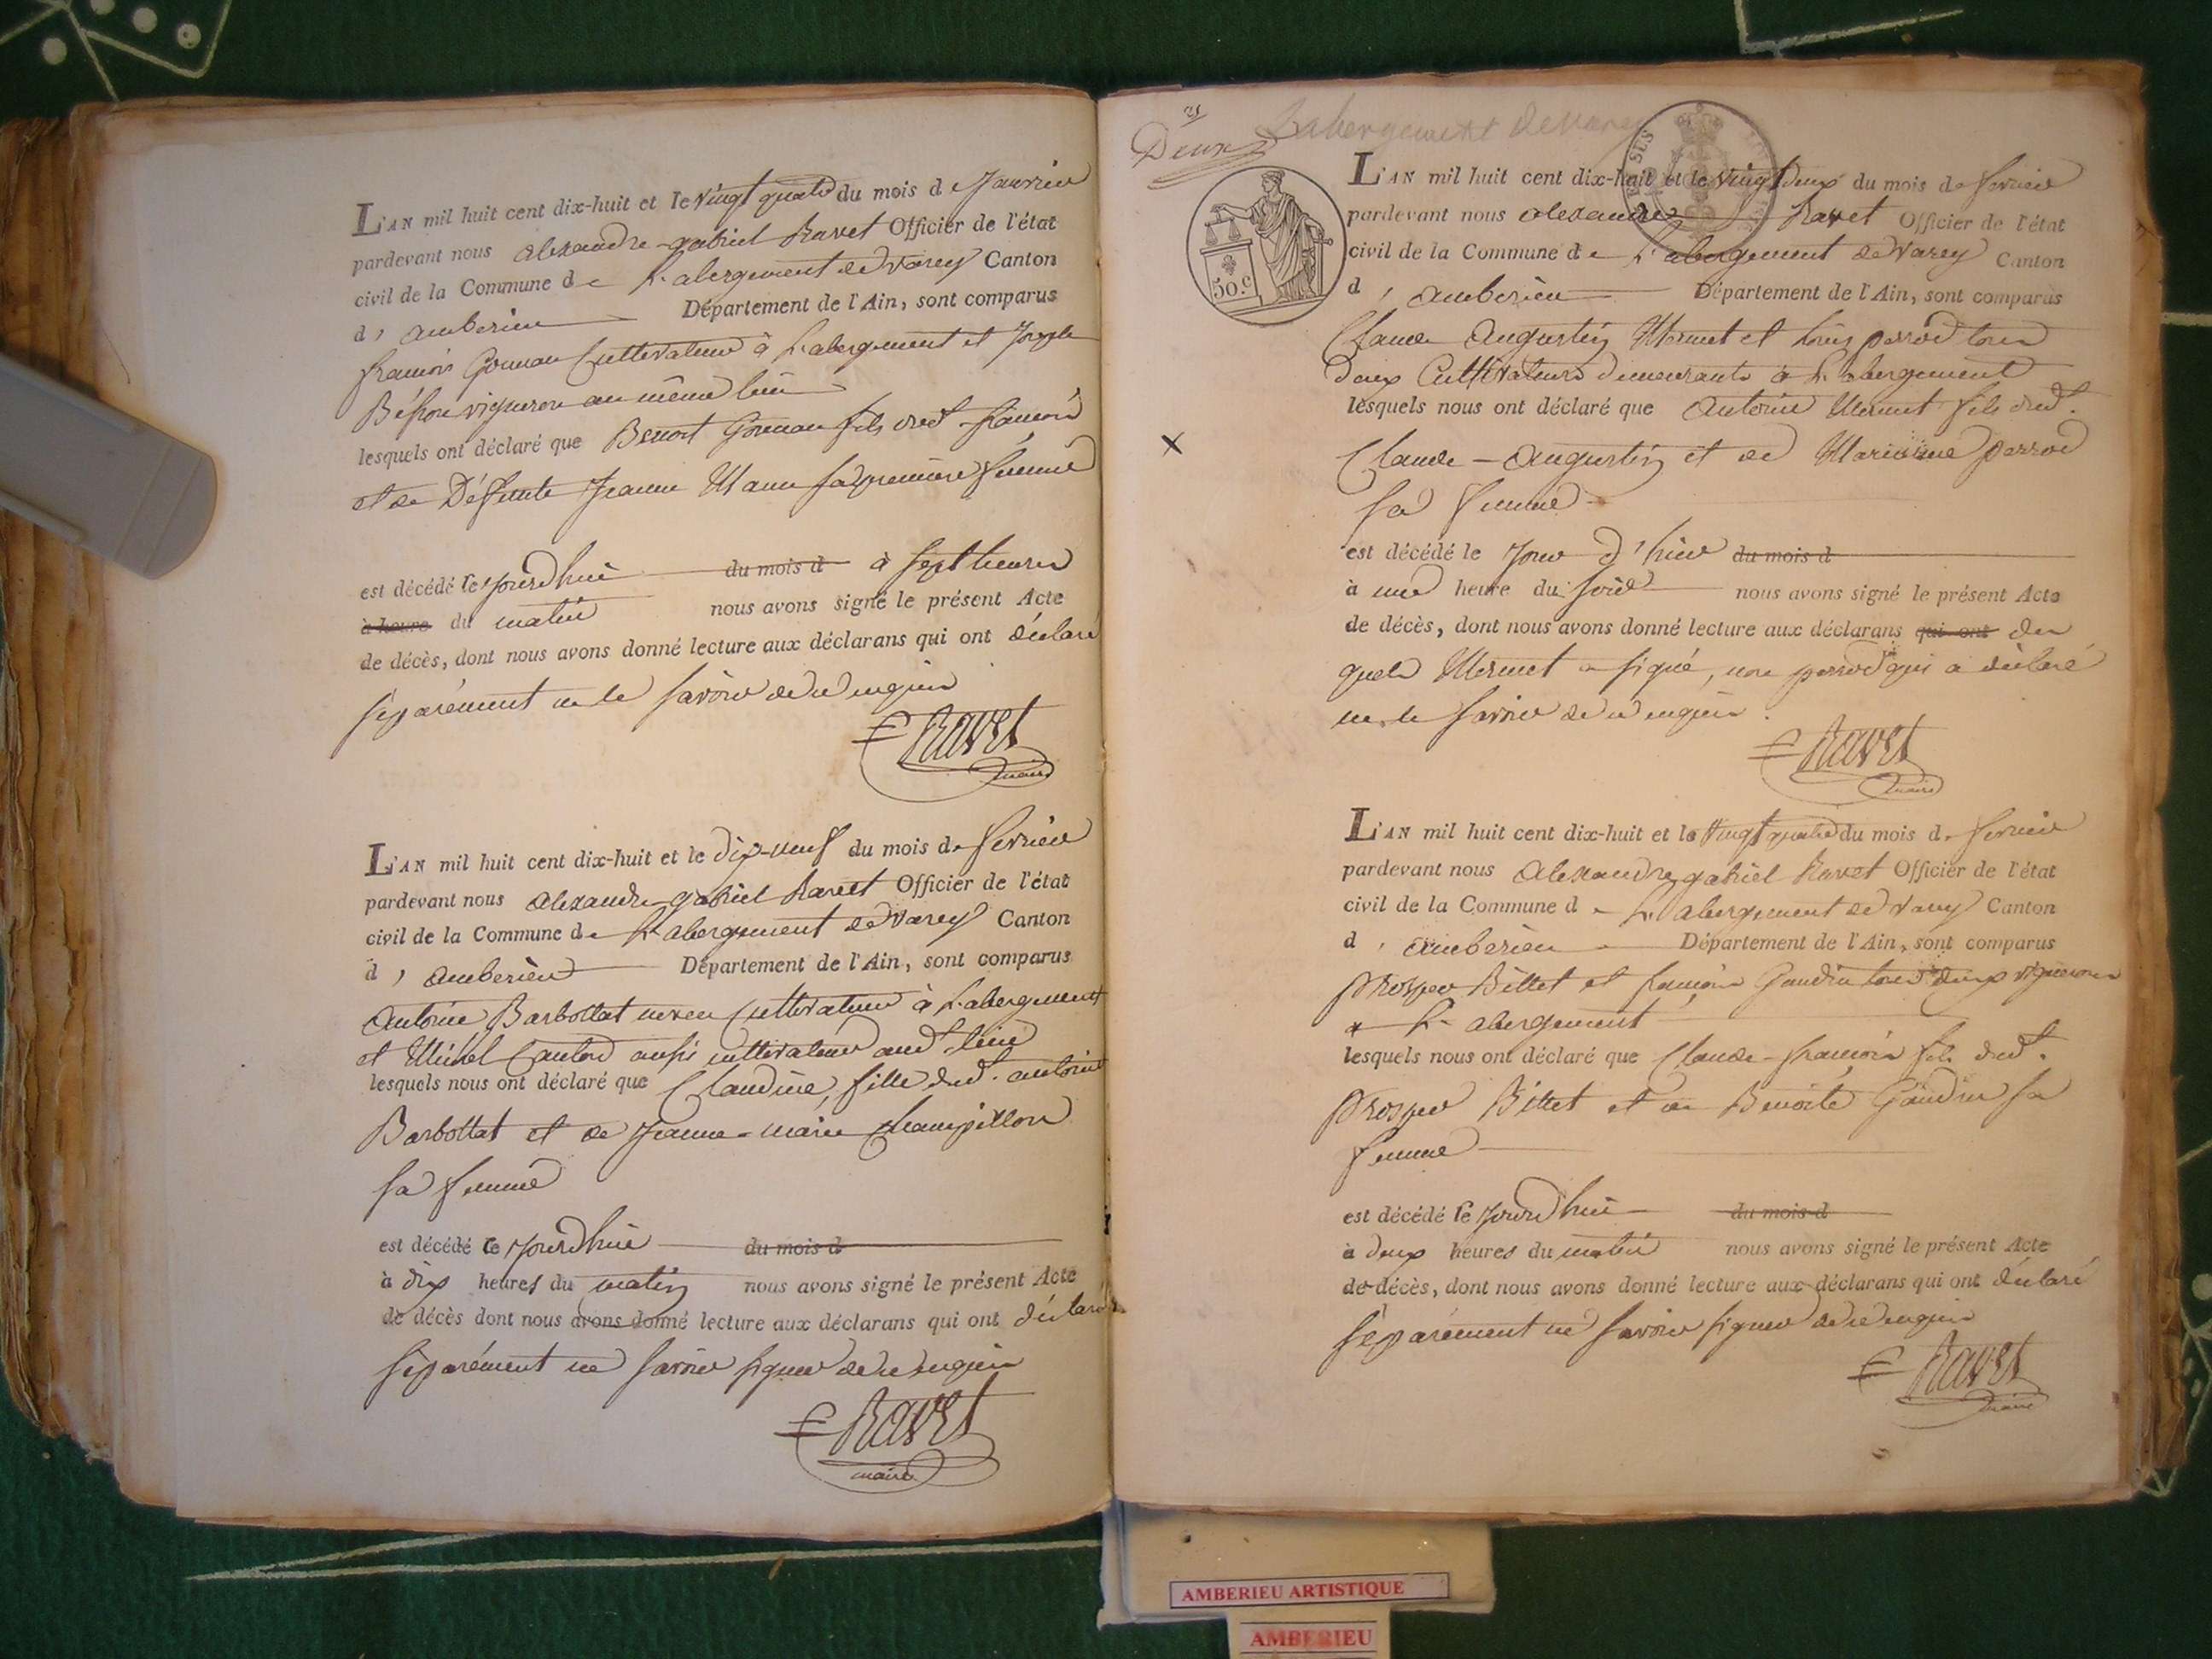 L'AN mil huit cent dix-huit et le vingt quatre du mois de Janvier
pardevant nous alexandre-gabriel Ravet Officier de l'état
civil de la Commune de L'abergement de varey Canton
d'amberieu Département de l'Ain, sont comparus
francois Gonnau Cultivateur à L'abergement et Joseph
vigneron au même lieu
lesquels ont déclaré que Benoit Gonnau fils dud. francois
et de Défunte Jeanne Manu sa premiere femme
est décédé le jourdhui du mois d à sept heures
à heure du matin nous avons signé le présent Acte
de décès, dont nous avons donné lecture aux déclarans qui ont déclaré
séparément ne le savoir de ce enquis
Ravet
maire
L'AN mil huit cent dix-huit et le dix-neuf du mois de fevrier
pardevant nous alexandre gabriel Ravet Officier de l'état
civil de la Commune de L'abergement de varey Canton
d'amberieu Département de l'Ain, sont comparus
antoine Barbollat neveu Cultivateur à L'abergement
et Michel aussi cultivateur aud. lieu
lesquels nous ont déclaré que Claudine, fille dud. antoine
Barbollat et de Jeanne-marie champillon
sa femme
est décédé le jourdhui du mois d
à dix heures du matin nous avons signé le présent Acte
de décès dont nous avons donné lecture aux déclarans qui ont déclaré
séparément ne savoir signer de ce enquis
Ravet
maire
Deux
Labergement de varey
50 c
L'AN mil huit cent dix-huit et le vingt deux du mois de fevrier
pardevant nous alexandre Ravet Officier de l'état
civil de la Commune de L'abergement de varey Canton
d'amberieu Département de l'Ain, sont comparus
Claude Augustin Mermet et Louis perrod tous
deux Cultivateurs demeurants à L'abergement
lesquels nous ont déclaré que Antoine Mermet fils dud.
Claude-Augustin et de Marianne perrod
sa femme
est décédé le jour d'hier du mois d
à une heure du soir nous avons signé le présent Acte
de décès, dont nous avons donné lecture aux déclarans qui ont des
quels Mermet a signé, non perrod qui a déclaré
ne le savoir de ce enquis.
Ravet
maire
L'AN mil huit cent dix-huit et le vingt quatre du mois de fevrier
pardevant nous Alexandre gabriel Ravet Officier de l'état
civil de la Commune de L'abergement de varey Canton
d'amberieu Département de l'Ain, sont comparus
Prosper Billet et francois Gaudin tous deux vignerons
à L'abergement
lesquels nous ont déclaré que Claude-francois fils dud.
Prosper Billet et de Benoite Gaudin sa
femme
est décédé le jourdhui du mois d
à deux heures du matin nous avons signé le présent Acte
de décès, dont nous avons donné lecture aux déclarans qui ont déclaré
séparément ne savoir signer de ce enquis
Ravet
maire
AMBERIEU ARTISTIQUE
AMBERIEU